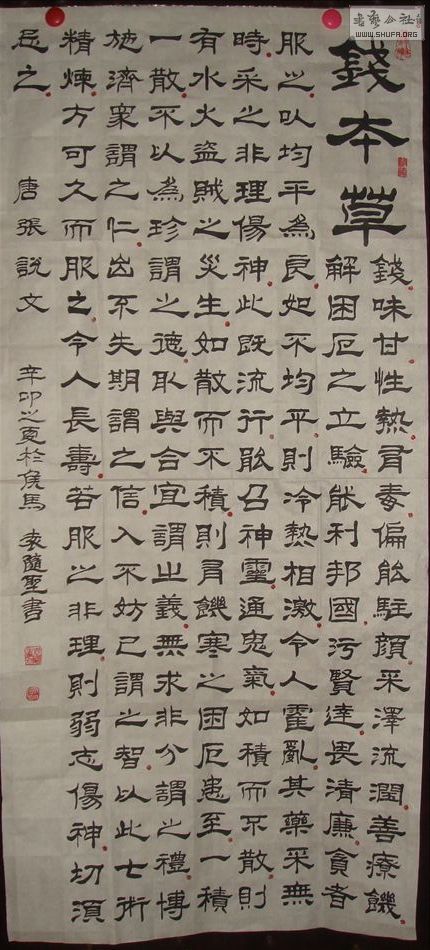 書藝公社
WWW.SHUFA.ORG
錢本草
錢味甘性熱有毒偏能駐顏采澤流潤善療饑
解困厄之立驗能利邦國污賢達畏清廉貪者
服之以均平為良如不均平則冷熱相激令人霍亂其藥采無
時采之非理傷神此既流行能召神靈通鬼氣如積而不散則
有水火盜賊之災生如散而不積則有饑寒之困厄患至一積
一散不以為珍謂之德取與合宜謂之義無求非分謂之禮博
施濟眾謂之仁出不失期謂之信入不妨己謂之智以此七術
精煉方可久而服之令人長壽若服之非理則弱志傷神切須
忌之 唐張說文 辛卯之夏於侯馬 袁隨聖書